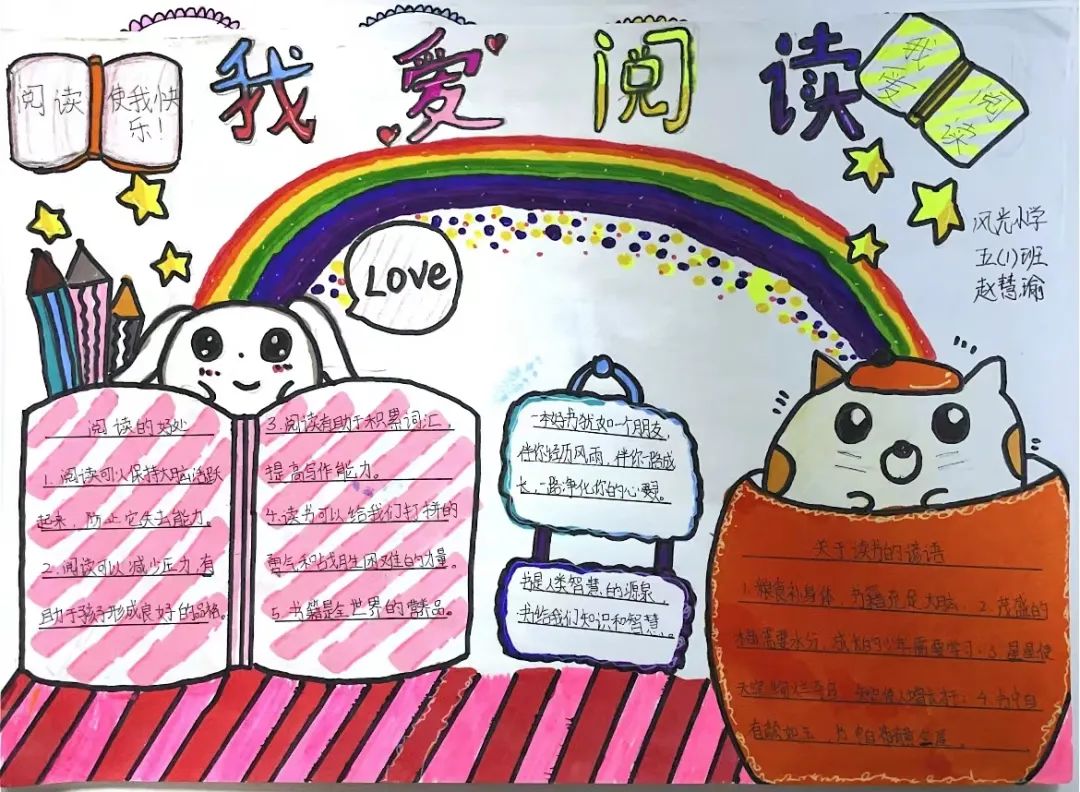 我爱阅读
阅读
使我快
乐！
我爱
阅读
风光小学
五(1)班
赵慧瑜
LOVE
阅读的好处
1.阅读可以保持大脑活跃
起来，防止它失去能力。
2.阅读可以减少压力，有
助于孩子形成良好的品格。
3.阅读有助于积累词汇，
提高写作能力。
4.读书可以给我们打拼的
勇气和战胜困难的力量。
5.书籍是全世界的营养品。
一本好书犹如一个朋友，
伴你经历风雨，伴你一路成
长，一路净化你的心灵。
书是人类智慧的源泉，
书给我们知识和智慧。
关于读书的谚语
1.粮食补身体，书籍充足大脑；2.茂盛的
禾苗需要水分，成长的少年需要学习；3.星星使
天空
4.书中自
有颜如玉，书中自有黄金屋。